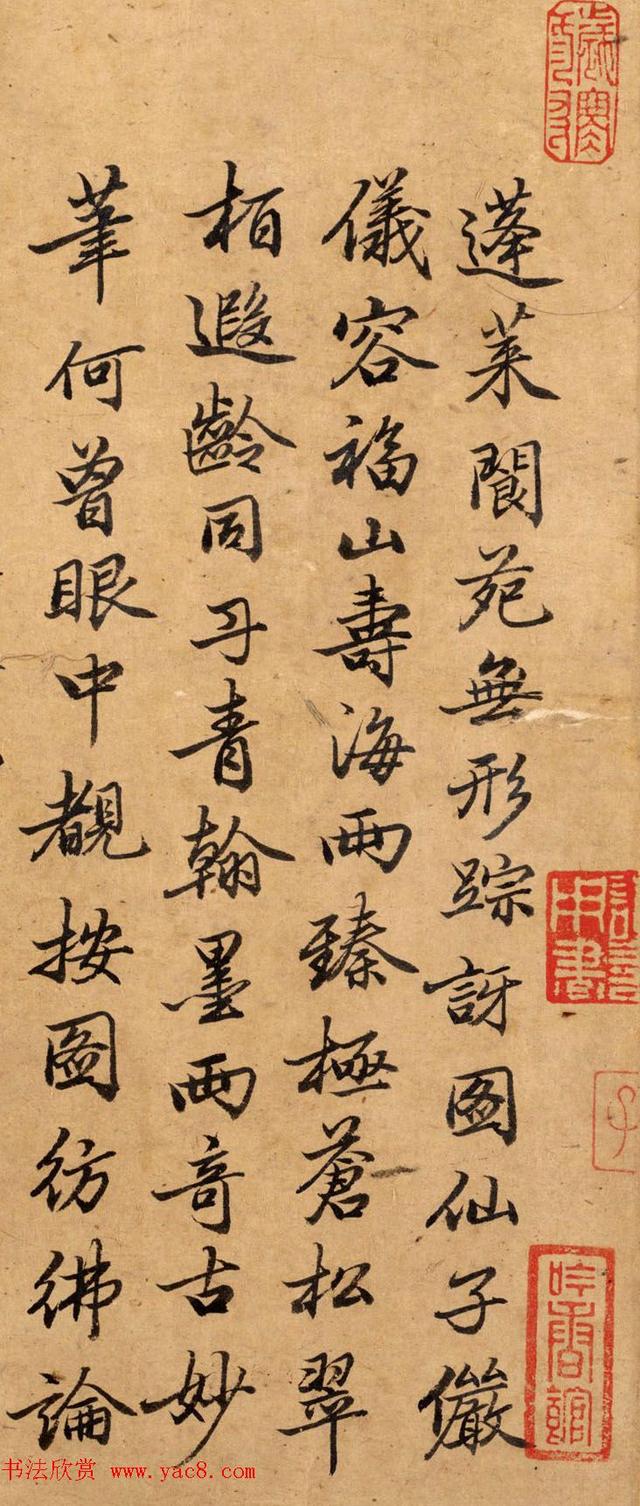 蓬萊閬苑無形踪訝图仙子儼
儀容福山壽海兩臻極蒼松翠
栢遐齡同丹青翰墨兩竒古妙
筆何曾眼中覩按圖彷彿論
吟香館
书法欣赏 www.yac8.com